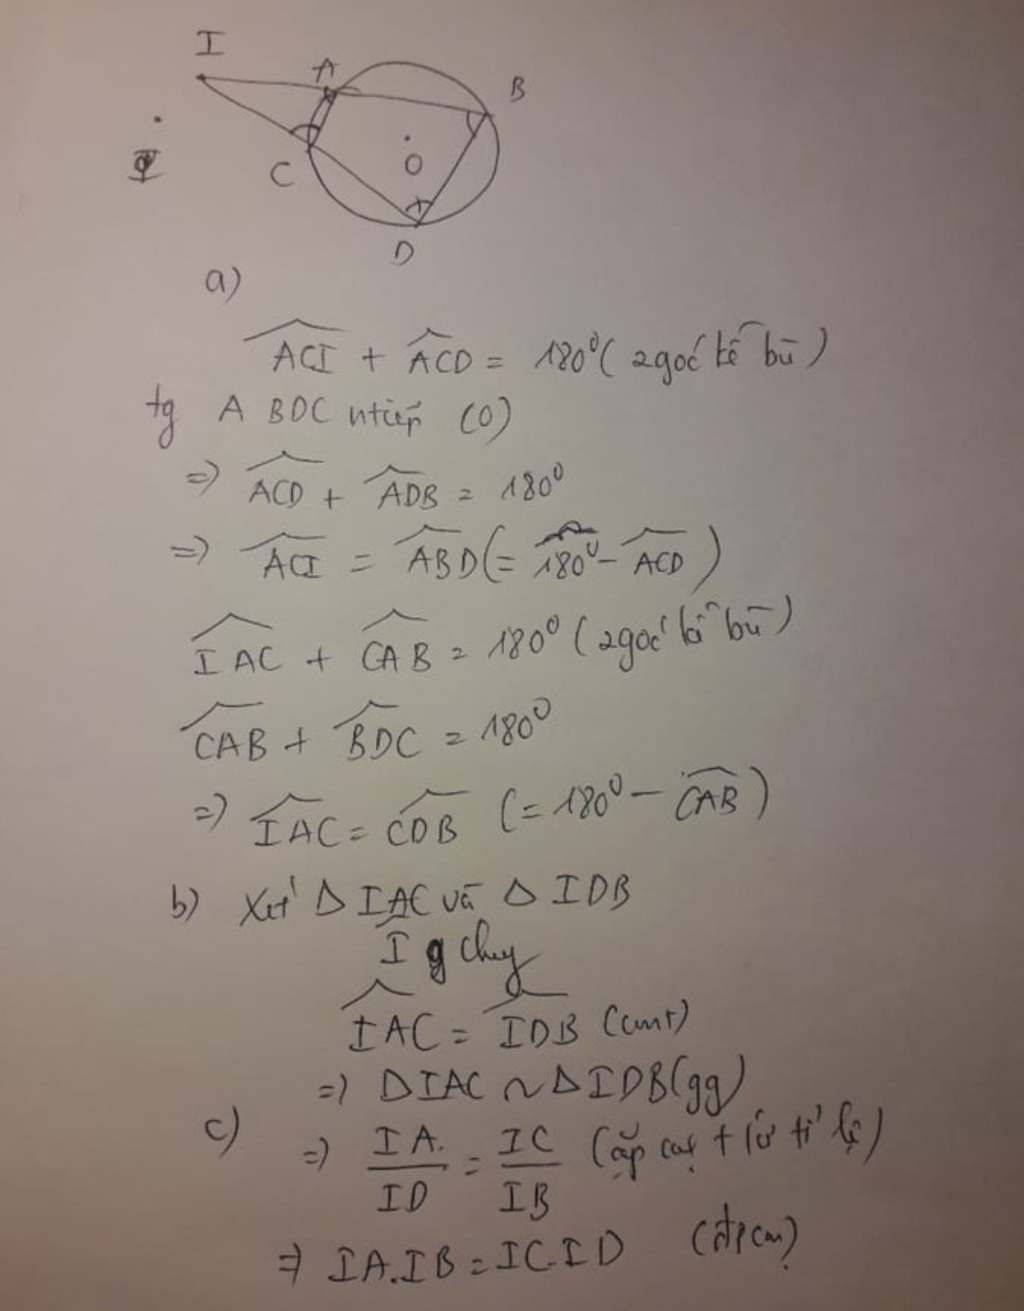 I
A
B
C
O
D
a)
ACI + ACD = 180⁰ ( 2 góc kề bù )
tg A BDC ntiếp (O)
=> ACD + ADB = 180⁰
=> ACI = ABD (= 180⁰ - ACD )
IAC + CAB = 180⁰ ( 2 góc kề bù )
CAB + BDC = 180⁰
=> IAC = CDB (= 180⁰ - CAB )
b) Xét Δ IAC và Δ IDB
I g chug
IAC = IDB (cmt)
=> ΔIAC ~ ΔIDB (gg)
c) => IA/ID = IC/IB (cặp cạh t/ứ tỉ lệ)
=> IA.IB = IC.ID (đpcm)